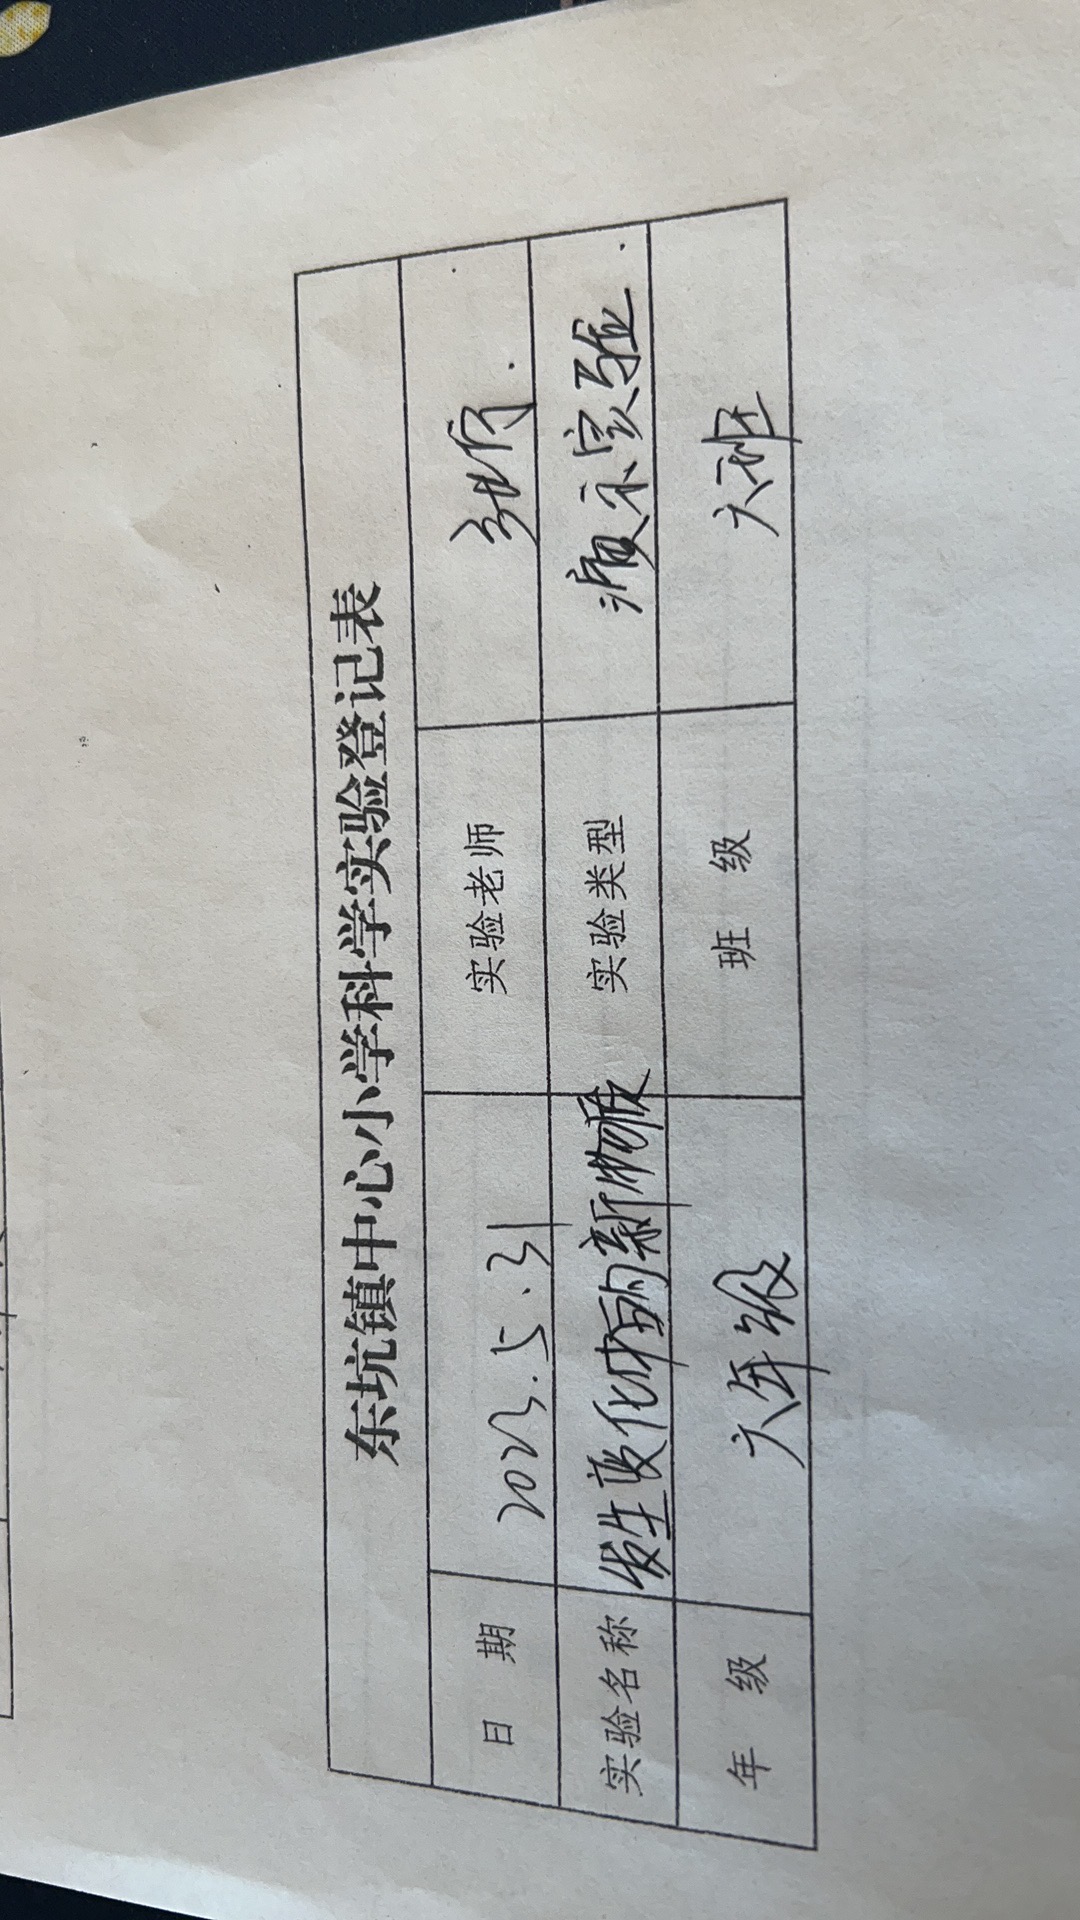 东坑镇中心小学科学实验登记表
日 期 2023.5.31 实验老师
实验名称 发生变化中的新物质 实验类型 演示实验
年 级 六年级 班 级 六班